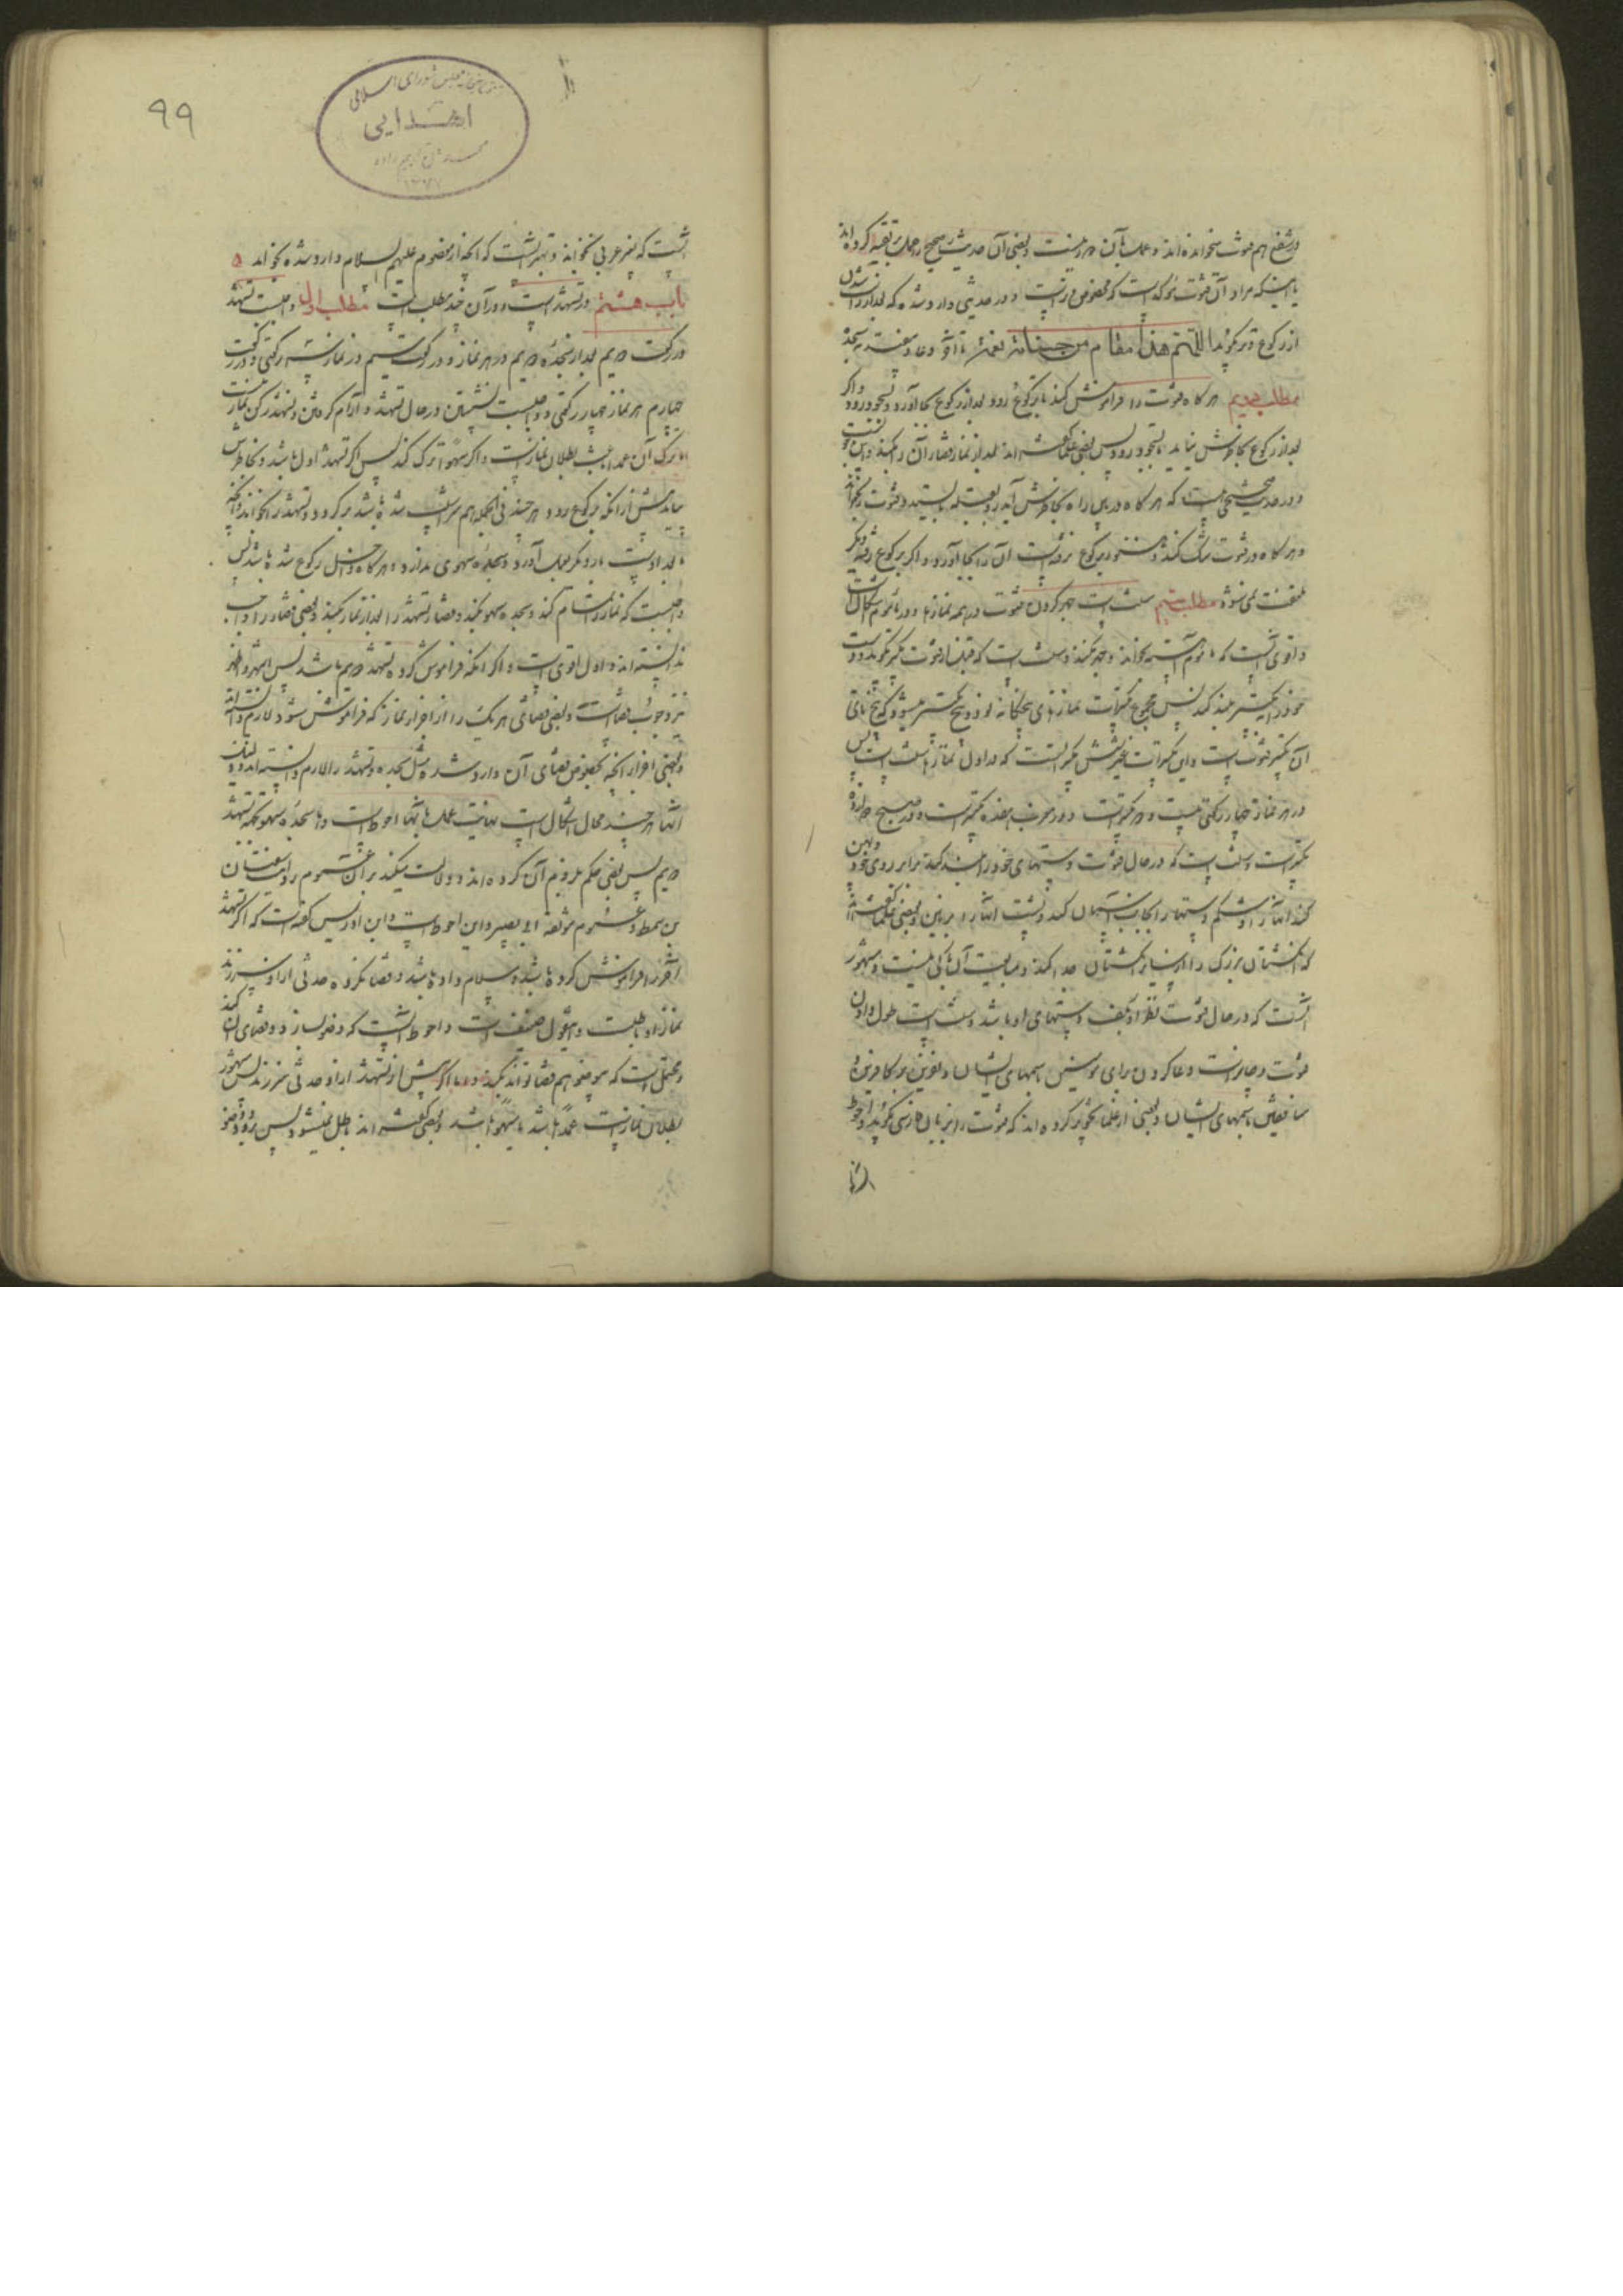 در شفع هم قنوت نخوانده‌اند و عمل بآن بد نیست و بعضی آن حدیث صحیح را حمل بر تقیه کرده‌اند
یا اینکه مراد آن قنوت مؤکد است که مخصوص وتر است و در حدیثی وارد شده که بعد از برداشتن
از رکوع وتر بگوید اللهم هذا مقام من حسناته نعمة تا آخر دعا
مطلب دویم هرگاه قنوت را فراموش کند تا برکوع رود بعد از رکوع بجا آورد و بسجود رود و اگر
بعد از رکوع بخاطرش نیاید تا بسجود رود پس بعضی علما گفته‌اند بعد از نماز قضای آن را بکند
و در حدیث صحیحی هست که هرگاه در بین راه بخاطرش آید رو بقبله بایستد و قنوت را بخواند
و هرگاه در قنوت شک کند و هنوز برکوع نرفته است آن را بجا آورد و اگر برکوع رفته دیگر
ملتفت نمی‌شود مطلب سیم سنت است جهر کردن قنوت در همه نمازها و در مأموم اشکال است
و اقوی آنست که مأموم آهسته بخواند و جهر نکند و سنت است که قبل از قنوت تکبیر بگوید و دست
خود را بتکبیر بلند کند پس مجموع تکبیرات نمازهای پنجگانه نود و پنج تکبیر میشود که پنج تای
آن تکبیر قنوت است و این تکبیرات غیر شش تکبیر است که در اول نماز سنت است پس
در هر نماز چهار رکعتی بیست و یک تکبیر است و در مغرب هفده تکبیر است و در صبح دوازده
تکبیر است و سنت است که در حال قنوت دستهای خود را بلند کند برابر روی خود و پهن
کند آنها را و شکم دستها را بجانب آسمان کند و پشت آنها را بر زمین و بعضی علما گفته‌اند
که انگشتان بزرگ را از سایر انگشتان جدا کند و متابعت آن باکی نیست و مشهور
آنست که در حال قنوت نظر او بکف دستهای او باشد و سنت است طول دادن
قنوت و جایز است دعا کردن برای مؤمنین باسمهای ایشان و نفرین بر کافرین و
منافقین باسمهای ایشان و بعضی از علما تجویز کرده‌اند که قنوت را بزبان فارسی بگوید و احوط
۹۹
کتابخانه مجلس شورای اسلامی
اهدایی
۱۳۷۷
آنست که بغیر عربی نخواند و بهتر آنست که آنچه از معصوم علیهم السلام وارد شده بخواند
باب هشتم در تشهد است و در آن چند مطلب است مطلب اول واجبست تشهد
در رکعت دویم بعد از سجده دویم در هر نماز و در رکعت سیم در نماز سه رکعتی و در رکعت
چهارم هر نماز چهار رکعتی و واجبست نشستن در حال تشهد و آرام گرفتن و تشهد رکن نماز نیست
اما ترک آن عمدا باعث بطلان نماز است و اگر سهوا ترک کند پس اگر تشهد اول باشد و بخاطرش
بیاید پیش از آنکه برکوع رود هر چند فی الجمله هم سرش پست شده باشد برگردد و تشهد را بخواند و آنچه
بعد از آنست بار دیگر بعمل آورد و سجده سهوی ندارد و هرگاه داخل رکوع شده باشد پس
واجبست که نماز را تمام کند و سجده سهو بکند و قضای تشهد را بعد از نماز بکند و بعضی قضا را واجب
ندانسته‌اند و اول اقوی است و اگر آنکه فراموش کرده تشهد دویم باشد پس اشهر و اظهر
نیز وجوب قضا است و بعضی قضای هر یک را از اجزاء نماز که فراموش شود لازم دانسته‌اند
و بعضی اجزاء آنچه بخصوص قضای آن وارد شده مثل سجده و تشهد را لازم دانسته‌اند و دلیل
آنها هر چند محل اشکال است نهایت عمل بآنها احوط است و اما سجده سهو بجهة تشهد
دویم پس بعضی حکم بلزوم آن کرده‌اند و دلالت میکند بر آن عموم روایت سفیان
بن سمط و عموم موثقه ابی بصیر و این احوط است و ابن ادریس گفته است که اگر تشهد
آخر را فراموش کرده باشد و سلام داده باشد و قضا نکرده حدثی از او سر زند
نماز او باطلست و این قول ضعیف است و احوط آنست که وضو بسازد و قضای آن کند
و محتمل است که بی وضو هم قضا تواند بکند و اما اگر پیش از تشهد از او حدثی سر زند پس مشهور
بطلان نماز است عمدا باشد یا سهوا باشد و بعضی گفته‌اند باطل نمیشود پس برود وضو